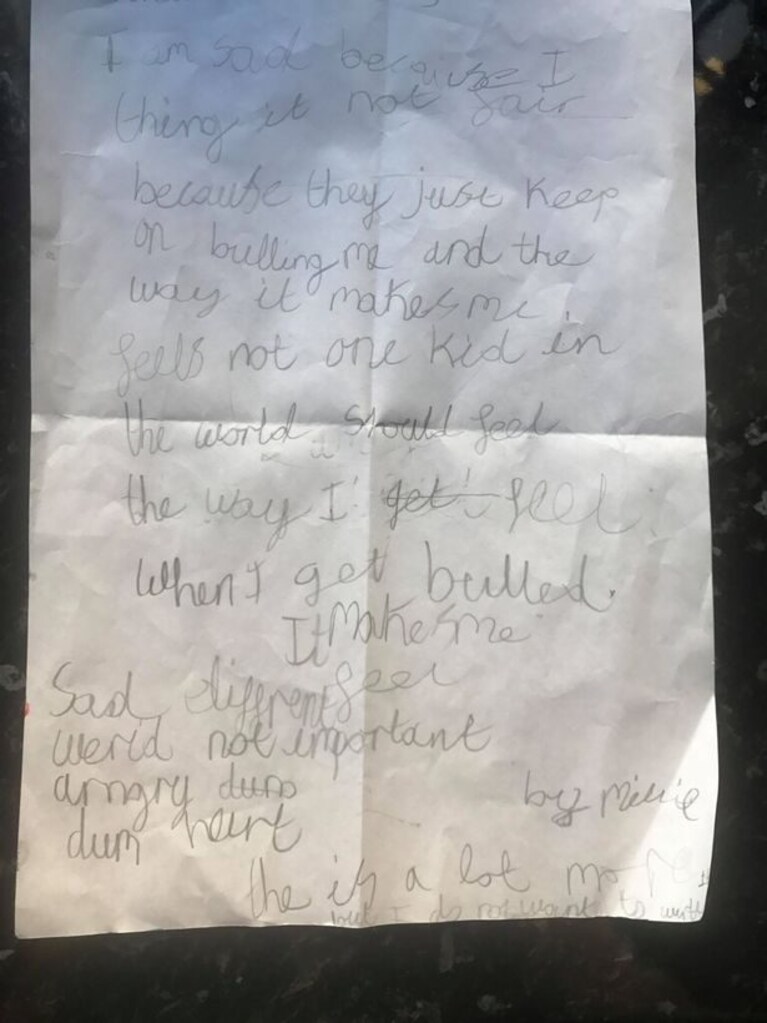 I am sad because I
thing it not fair
because they just keep
on bulling me and the
way it makes me
feels not one kid in
the world should feel
the way I get feel
when I get bulled.
It makes me
feel
Sad different
werid not important
arngry dum
dum heart
by Millie
the is a lot more
but I do not want to